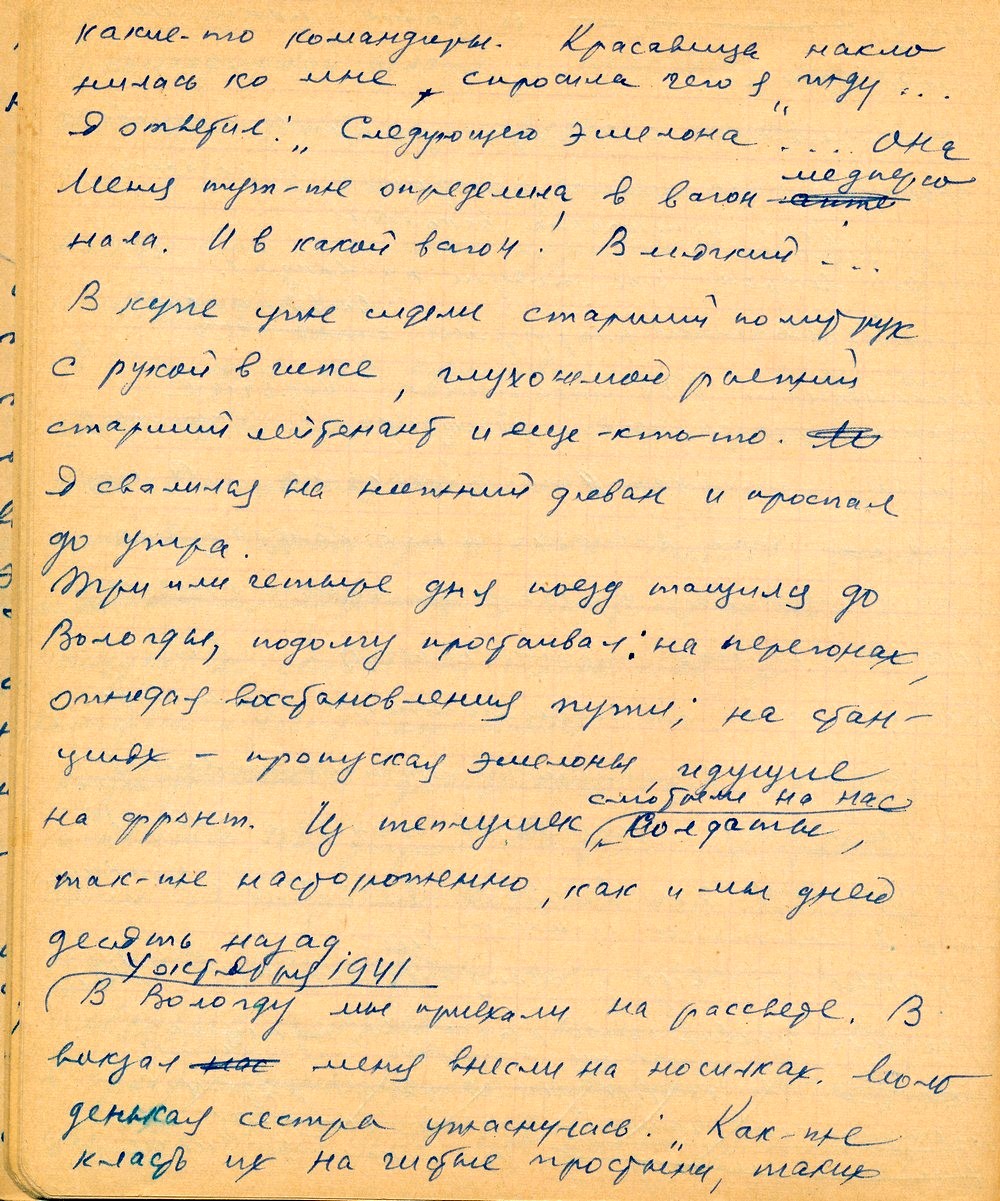 какие-то командиры. Красавица накло
нилась ко мне, спросила чего я „жду...
Я ответил: „Следующего эшелона".... Она
меня тут-же определила, в вагон медперсо
нала. И в какой вагон! В мягкий...
В купе уже сидели старший политрук
с рукой в гипсе, глухонемой рыжий
старший лейтенант и еще-кто-то.
Я свалился на нижний диван и проспал
до утра.
Три или четыре дня поезд тащился до
Вологды, подолгу простаивал: на перегонах,
ожидая восстановления пути; на стан-
циях – пропуская эшелоны, идущие
смотрели на нас
на фронт. Из теплушек солдаты,
так-же настороженно, как и мы дней
десять назад.
4 октября 1941
В Вологду мы приехали на рассвете. В
вокзал меня внесли на носилках. Моло
денькая сестра ужаснулась: „Как-же
класть их на чистые простыни, таких